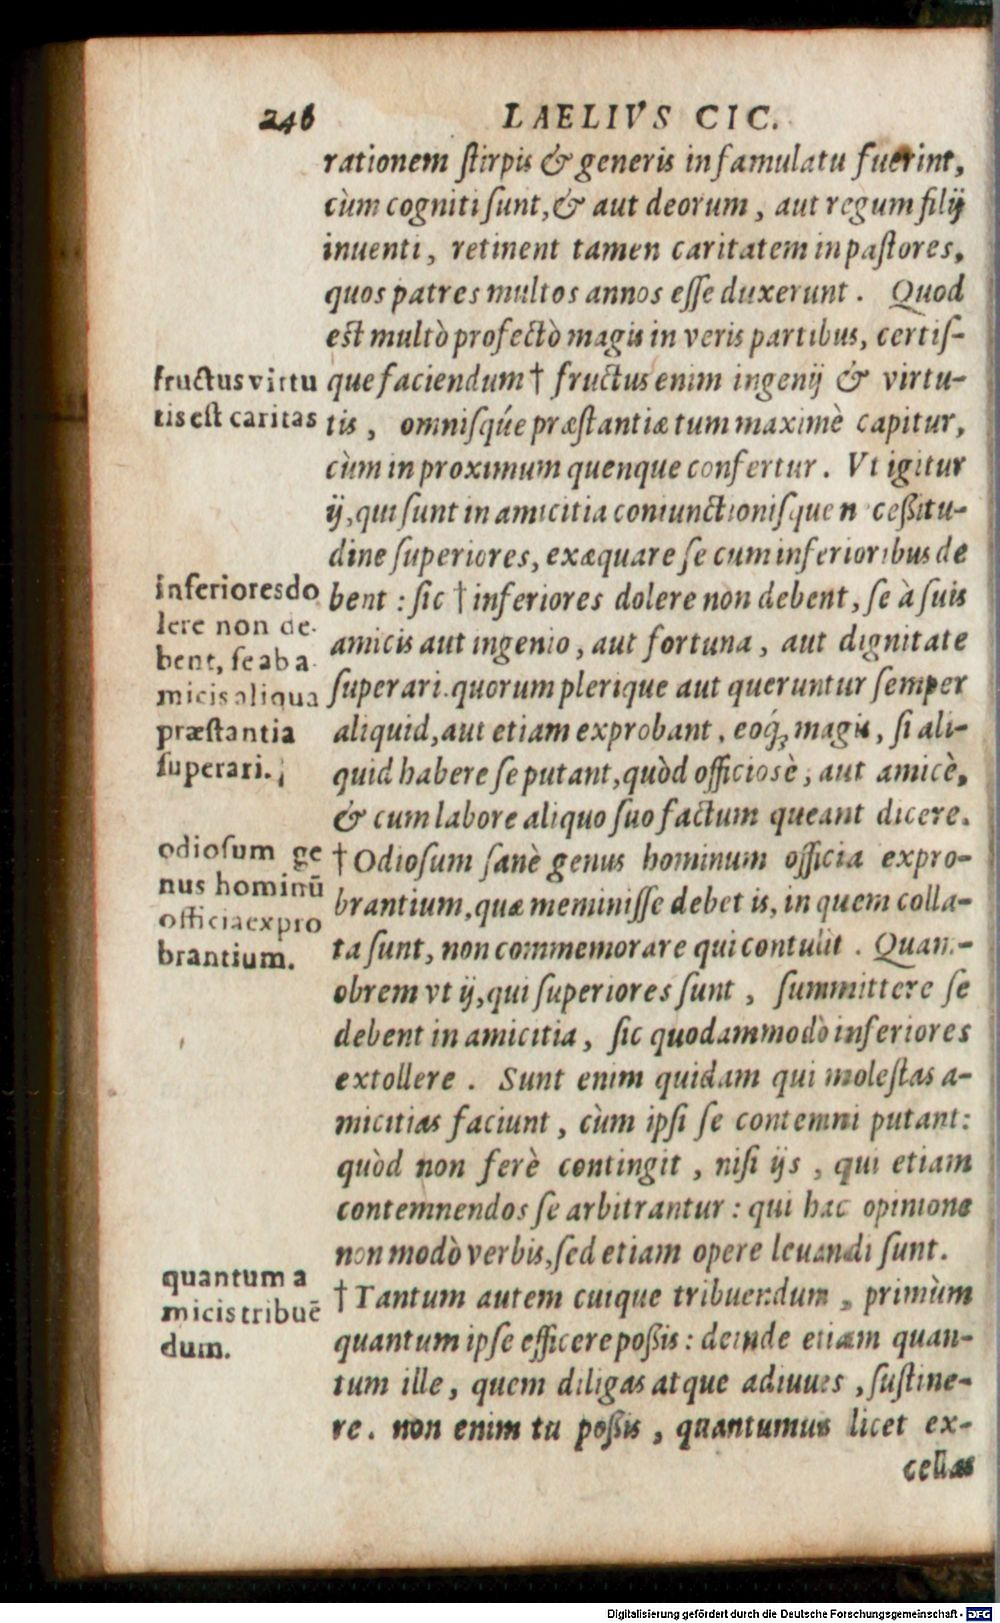 246 LAELIVS CIC.
rationem ſtirpis & generis in famulatu fuerint,
cùm cogniti ſunt, & aut deorum, aut regum filij
inuenti, retinent tamen caritatem in paſtores,
quos patres multos annos eſſe duxerunt. Quod
est multò profectò magis in veris partibus, certiſ-
que faciendum † fructus enim ingenij & virtu-
tis, omniſq́ue præſtantiæ tum maximè capitur,
cùm in proximum quenque confertur. Vt igitur
ij, qui ſunt in amicitia coniunctioniſque n ceßitu-
dine ſuperiores, exæquare ſe cum inferioribus de
bent: ſic † inferiores dolere non debent, ſe à ſuis
amicis aut ingenio, aut fortuna, aut dignitate
ſuperari. quorum plerique aut queruntur ſemper
aliquid, aut etiam exprobant, eoq́; magis, ſi ali-
quid habere ſe putant, quòd officiosè, aut amicè,
& cum labore aliquo ſuo factum queant dicere.
† Odioſum ſanè genus hominum officia expro-
brantium, quæ meminiſſe debet is, in quem colla-
ta ſunt, non commemorare qui contulit. Quam-
obrem vt ij, qui ſuperiores ſunt, ſummittere ſe
debent in amicitia, ſic quodammodò inferiores
extollere. Sunt enim quidam qui moleſtas a-
micitias faciunt, cùm ipſi ſe contemni putant:
quòd non ferè contingit, niſi ijs, qui etiam
contemnendos ſe arbitrantur: qui hac opinione
non modò verbis, ſed etiam opere leuandi ſunt.
† Tantum autem cuique tribuendum, primùm
quantum ipſe efficere poßis: deinde etiam quan-
tum ille, quem diligas atque adiuues, ſuſtine-
re. non enim tu poßis, quantumuis licet ex-
cellas
fructus virtu
tis est caritas
inferiores do
lere non de-
bent, ſe ab a-
micis aliqua
præſtantia
ſuperari.
odioſum ge
nus hominũ
officia expro
brantium.
quantum a
micis tribuẽ
dum.
Digitalisierung gefördert durch die Deutsche Forschungsgemeinschaft - DFG